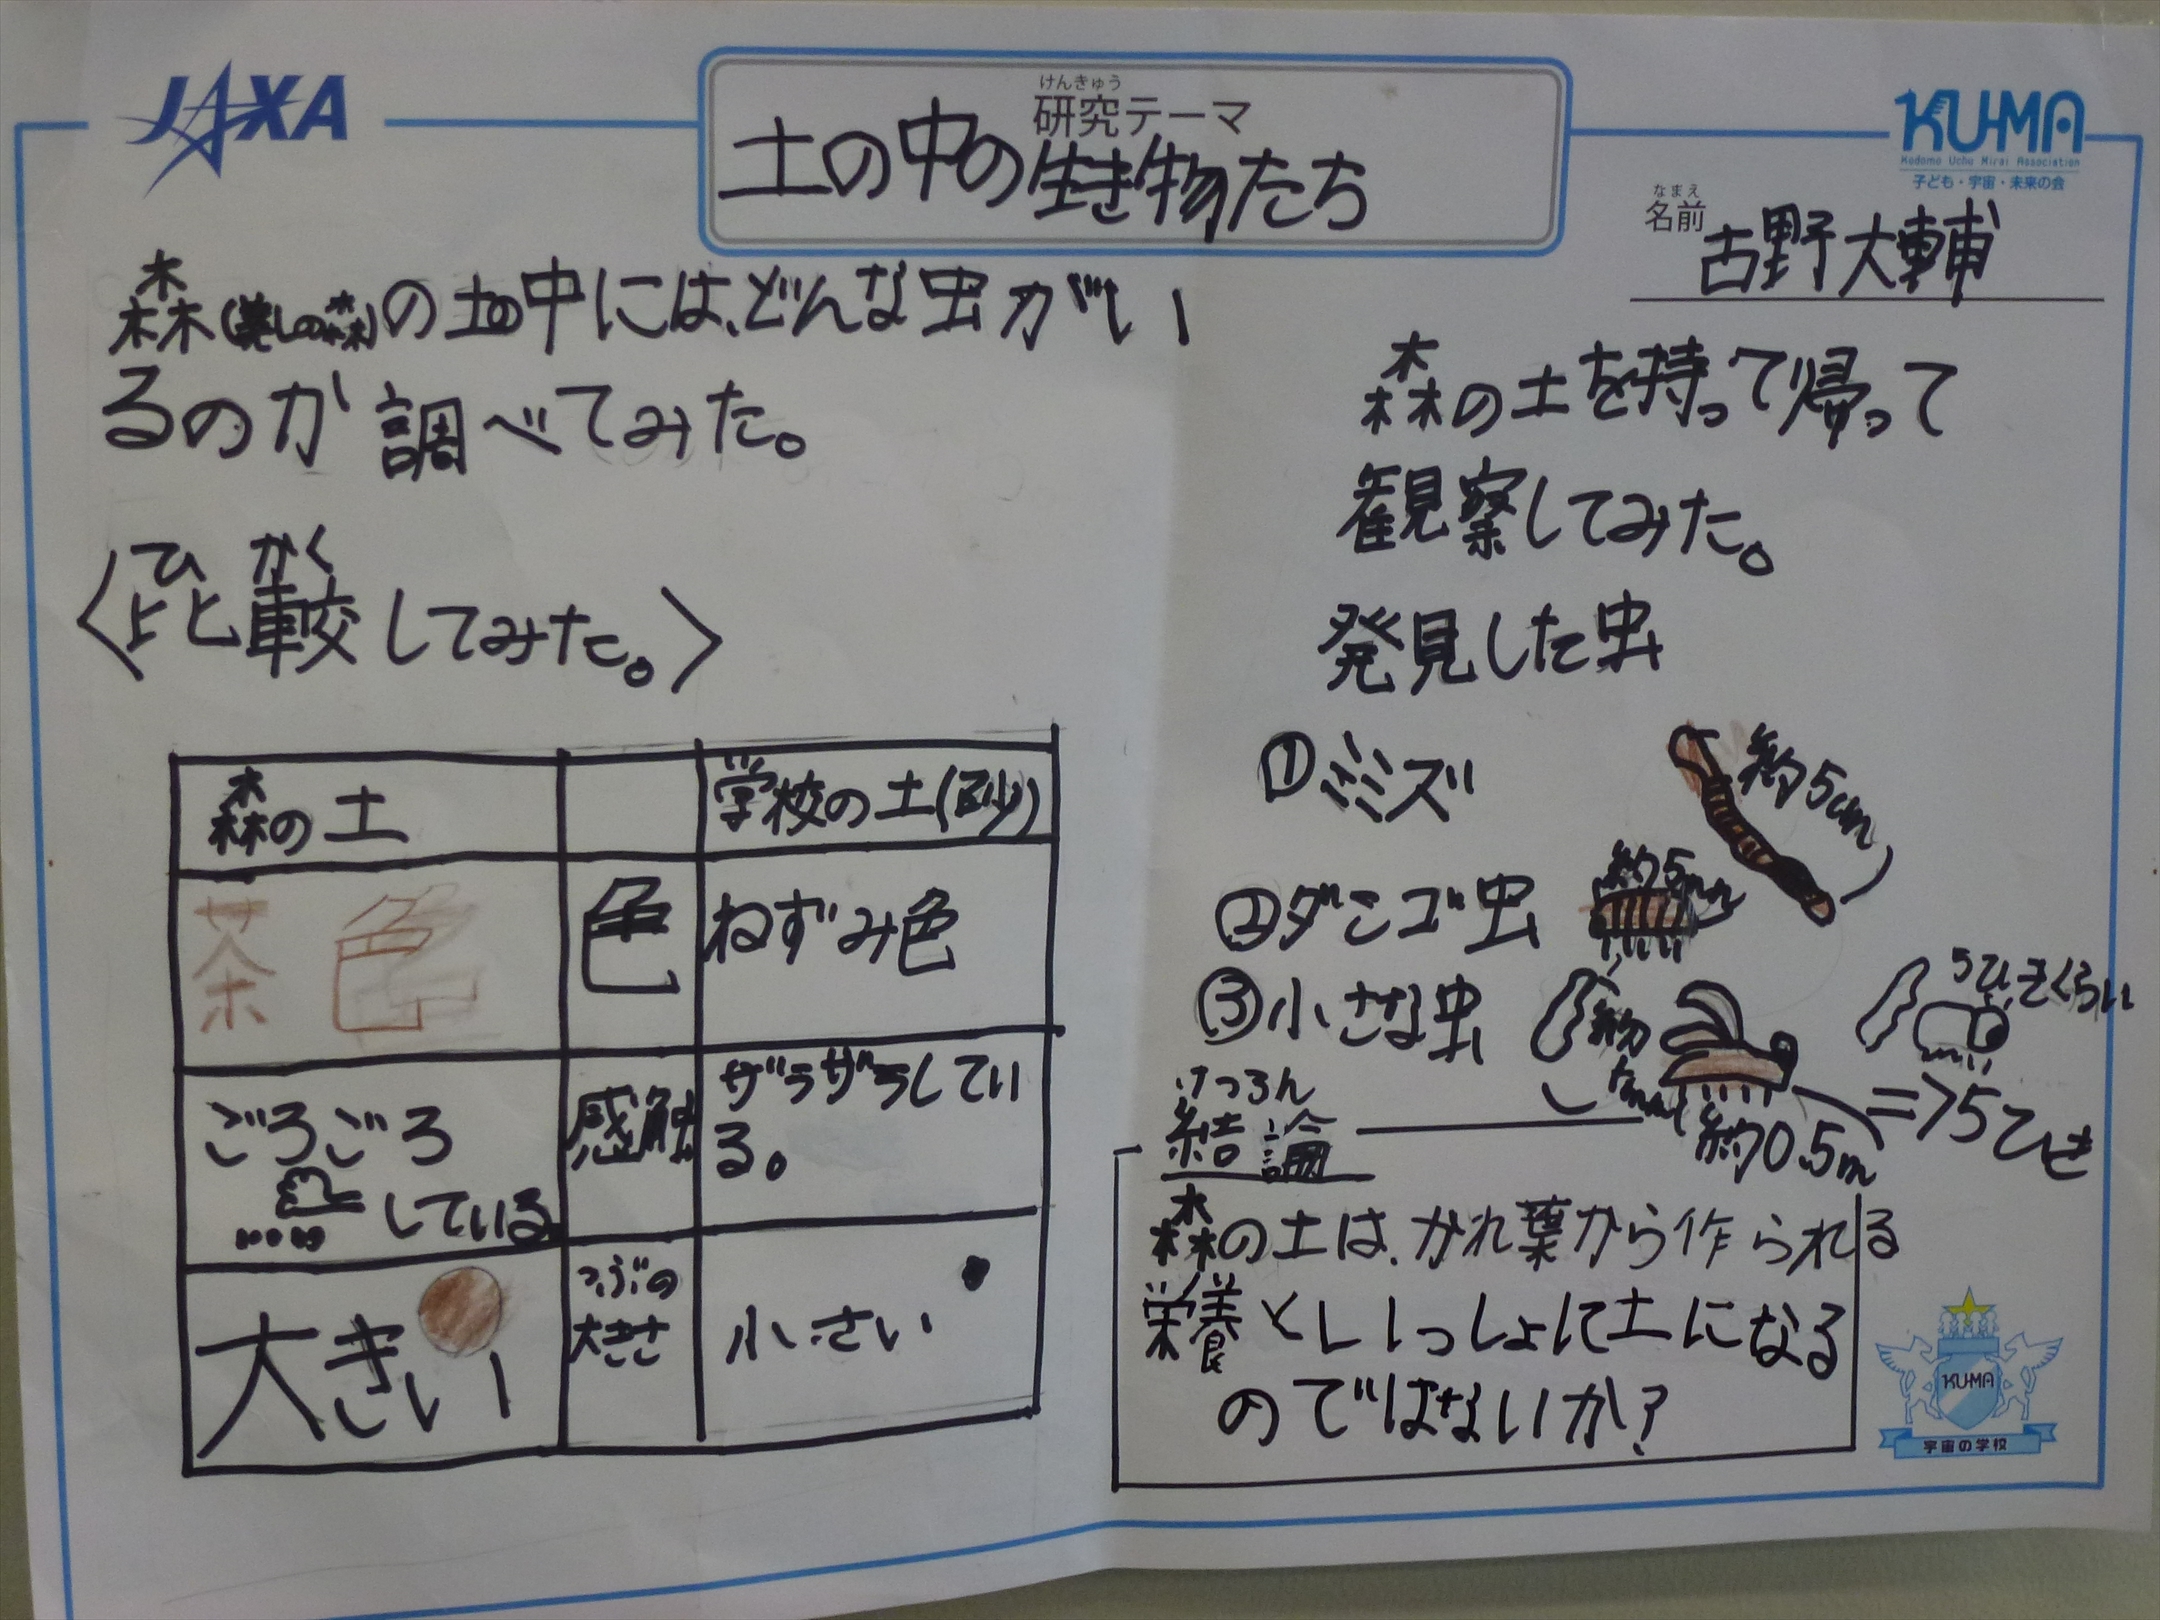 JAXA
けんきゅう
研究テーマ
土の中の生き物たち
KU-MA
Kodomo Uchu Mirai Association
子ども・宇宙・未来の会
なまえ
名前 古野大輔
森(美しの森)の土の中には、どんな虫がい
るのか調べてみた。
ひ かく
〈比較してみた。〉
森の土 学校の土(砂)
茶色 色 ねずみ色
ごろごろ 感触 ザラザラしてい
している る。
大きい つぶの 小さい
大きさ
森の土を持って帰って
観察してみた。
発見した虫
①ミミズ 約5cm
②ダンゴ虫 約5mm
③小さな虫 約0.5m
5ひきくらい
=>5ひき
けつろん
結論
森の土は、かれ葉から作られる
栄養といっしょに土になる
のではないか?
KU-MA
宇宙の学校